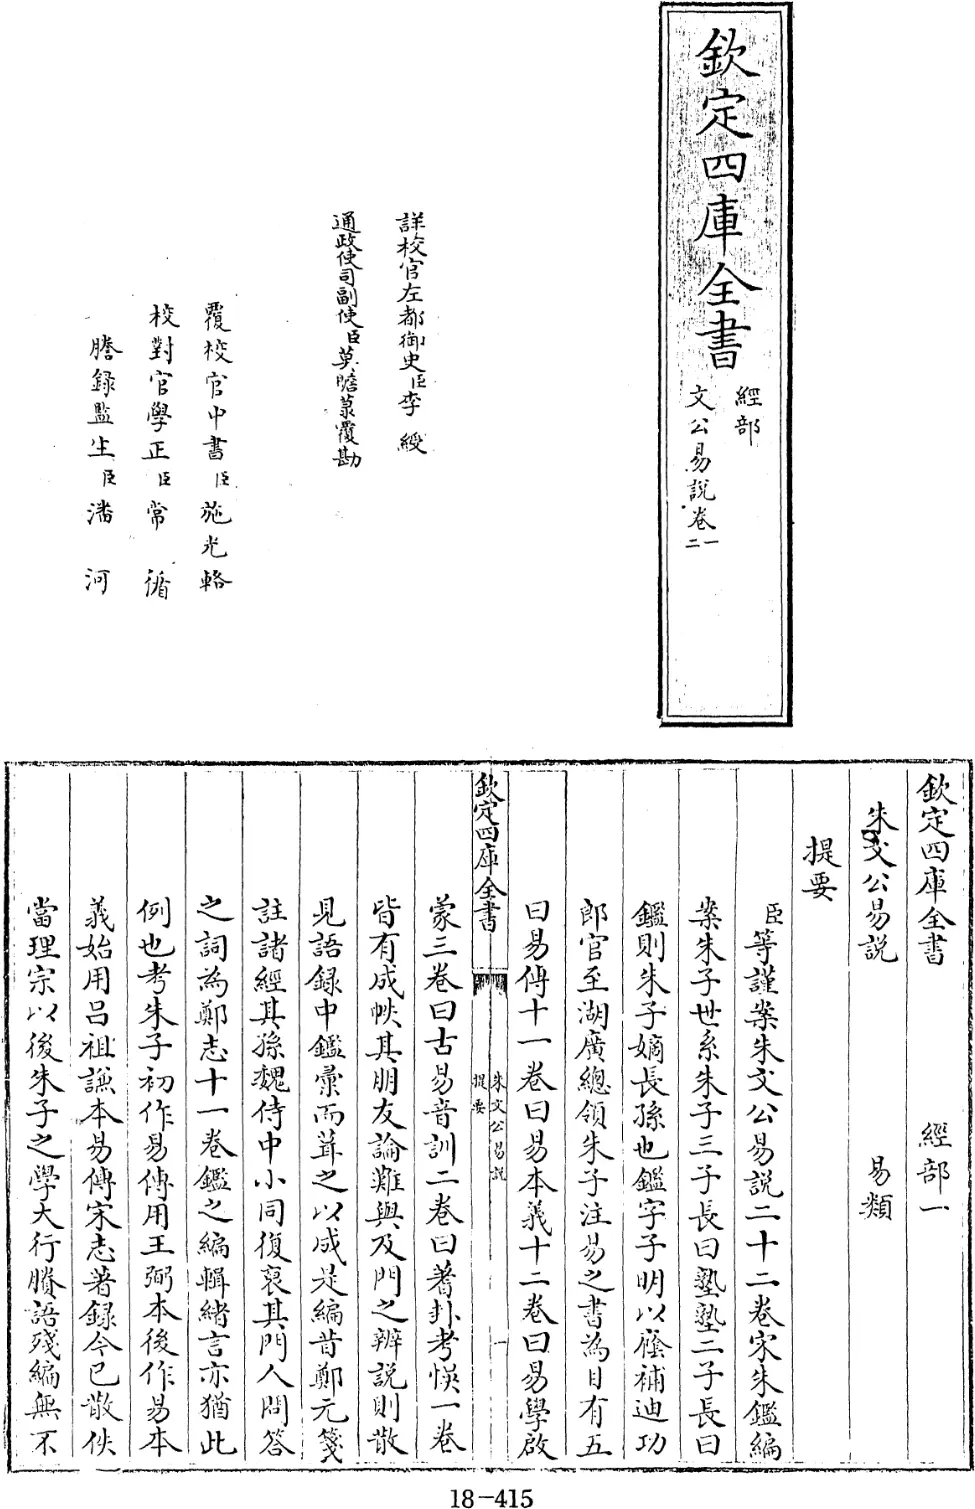 欽定四庫全書
經部
文公易說卷一
二
詳校官左都御史臣李綬
通政使司副使臣莫瞻菉覆勘
覆校官中書臣施光輅
校對官學正臣常循
謄錄監生臣潘河
欽定四庫全書 經部一
朱文公易説 易類
提要
臣等謹案朱文公易説二十二卷宋朱鑑編
案朱子世系朱子三子長曰塾塾二子長曰
鑑則朱子嫡長孫也鑑字子明以廕補迪功
郎官至湖廣總領朱子注易之書為目有五
曰易傳十一卷曰易本義十二卷曰易學啟
欽定四庫全書
朱文公易説
提要
一
蒙三卷曰古易音訓二卷曰蓍卦考悞一卷
皆有成帙其朋友論難與及門之辨説則散
見語錄中鑑彚而葺之以成是編昔鄭元箋
註諸經其孫魏侍中小同復裒其門人問答
之詞為鄭志十一卷鑑之編輯緒言亦猶此
例也考朱子初作易傳用王弼本後作易本
義始用呂祖謙本易傳宋志著錄今已散佚
當理宗以後朱子之學大行賸語殘編無不
18-415